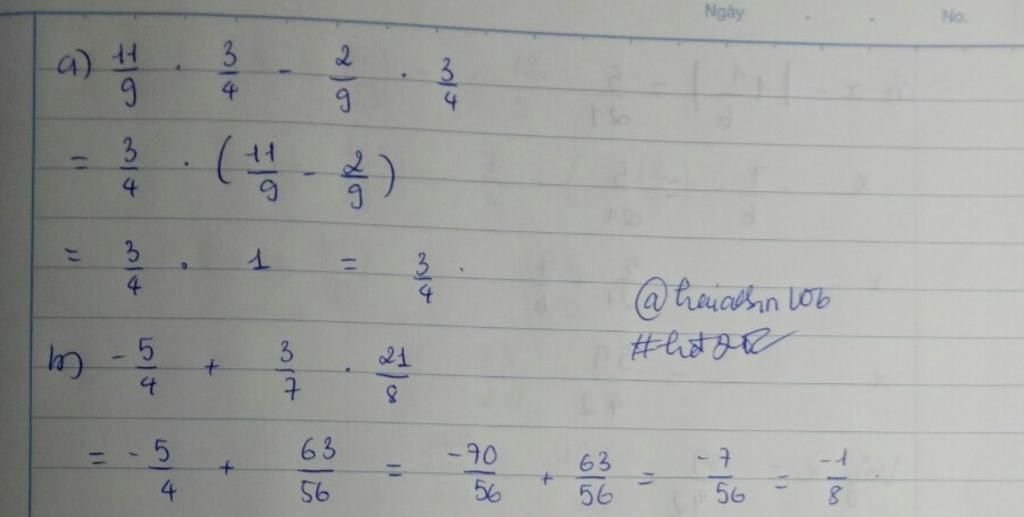 Ngày . . No.
a) 11/9 . 3/4 - 2/9 . 3/4
= 3/4 . (11/9 - 2/9)
= 3/4 . 1 = 3/4 .
b) -5/4 + 3/7 . 21/8
= -5/4 + 63/56 = -70/56 + 63/56 = -7/56 = -1/8 .